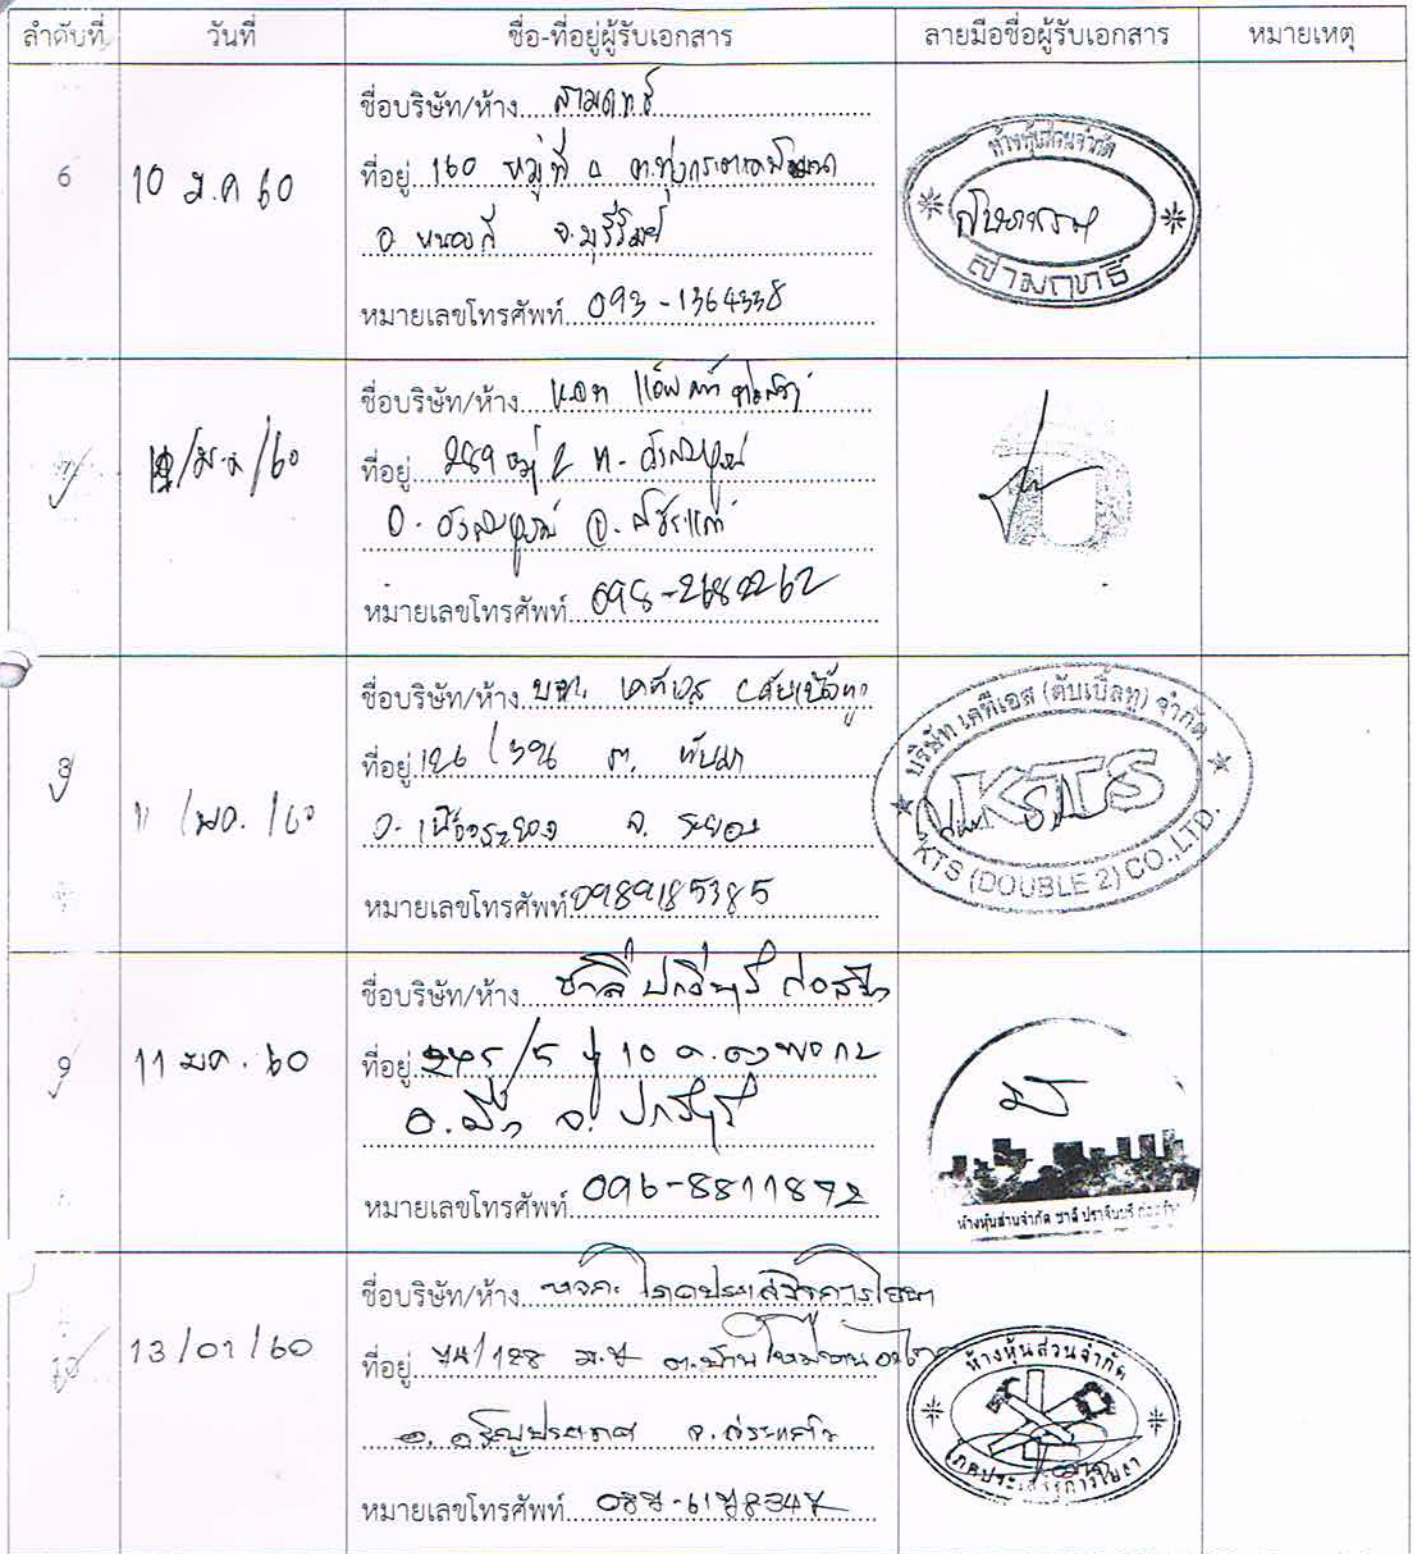 ลำดับที่ วันที่ ชื่อ-ที่อยู่ผู้รับเอกสาร ลายมือชื่อผู้รับเอกสาร หมายเหตุ
6 10 ม.ค 60
ชื่อบริษัท/ห้าง สามฤทธิ์
ที่อยู่ 160 หมู่ที่
อ. หนองกี่ จ.บุรีรัมย์
หมายเลขโทรศัพท์ 093-1364338
ห้างหุ้นส่วนจำกัด
สามฤทธิ์
7 /ม.ค/60
ชื่อบริษัท/ห้าง
ที่อยู่ 289 หมู่ 2 ต. วังสมบูรณ์
อ. วังสมบูรณ์ จ. สระแก้ว
หมายเลขโทรศัพท์ 098-2682262
8 11 /มค. /60
ชื่อบริษัท/ห้าง บจก. เคทีเอส
ที่อยู่ 126 ต. ทับมา
อ. เมืองระยอง จ. ระยอง
หมายเลขโทรศัพท์ 0989185385
บริษัท เคทีเอส (ดับเบิ้ลทู) จำกัด
KTS
KTS (DOUBLE 2) CO.,LTD.
9 11 มค. 60
ชื่อบริษัท/ห้าง ชาลี ปราจีนบุรี ก่อสร้าง
ที่อยู่ /5 ม 10 ต.
อ.เมือง จ. ปราจีนบุรี
หมายเลขโทรศัพท์ 096-8811872
ห้างหุ้นส่วนจำกัด ชาลี ปราจีนบุรี ก่อสร้าง
10 13/01/60
ชื่อบริษัท/ห้าง หจก. โภคประเสริฐการโยธา
ที่อยู่ 74/128 ม.7 ต.บ้านใหม่หนองไทร
อ. อรัญประเทศ จ.สระแก้ว
หมายเลขโทรศัพท์ 087-6178347
ห้างหุ้นส่วนจำกัด
โภคประเสริฐการโยธา